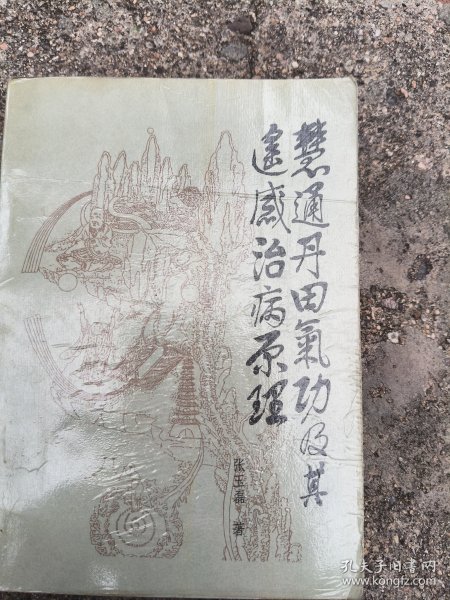 慧通丹田氣功及其
遥感治病原理
张玉磊 著
孔夫子旧书网
www.kongfz.com